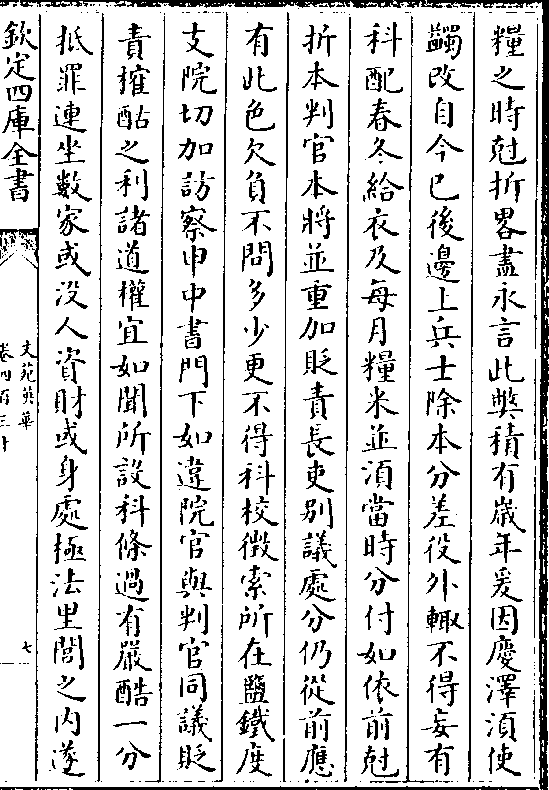 糧之時尅折畧盡永言此弊積有歲年爰因慶澤須使
蠲改自今已後邊上兵士除本分差役外輙不得妄有
科配春冬給衣及每月糧米並須當時分付如依前尅
折本判官本將並重加貶責長吏别議處分仍從前應
有此色欠負不問多少更不得科校徴索所在鹽鐵度
支院切加訪察申中書門下如違院官與判官同議貶
責搉酤之利諸道權宜如聞所設科條過有嚴酷一分
抵罪連坐數家或沒人資財或身處極法里閭之内遂
欽定四庫全書
文苑英華
卷四百三十
七